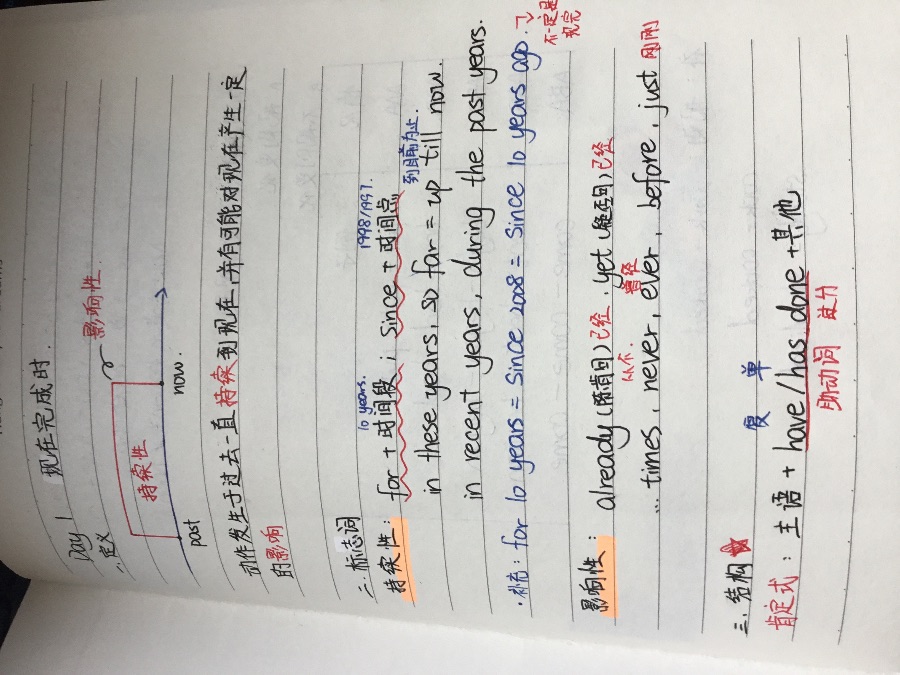 Day 1 现在完成时.
一.定义
影响性
持续性
past now.
动作发生于过去一直持续到现在,并有可能对现在产生一定
的影响
二.标志词
10 years. 1998/1997.
持续性: for + 时间段; since + 时间点
到目前为止.
in these years, so far = up till now.
in recent years, during the past years.
·补充: for 10 years = since 2008 = since 10 years ago.
不一定是
现完
影响性: already (陈肯句) 已经 . yet (疑否句) 已经
从不. 曾经
... times, never, ever, before, just 刚刚
三.结构
复 单
肯定式: 主语 + have/has done + 其他
助动词 过分